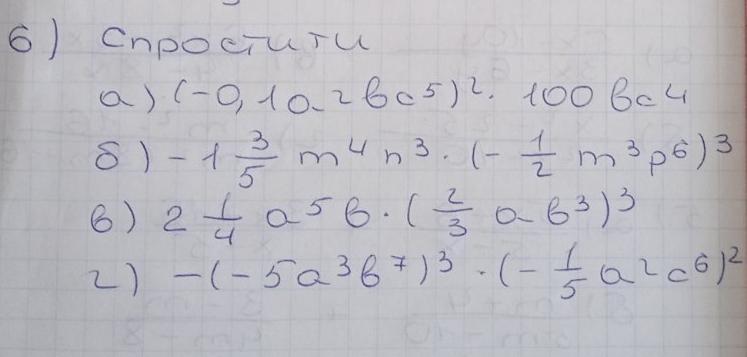 6) Спростити
а) (-0,1a²bc⁵)². 100bc4
б) -1 3/5 m⁴n³ · (- 1/2 m³p⁶)³
в) 2 1/4 a⁵b · (2/3 ab³)³
г) -(-5a³b⁷)³ · (- 1/5 a²c⁶)²